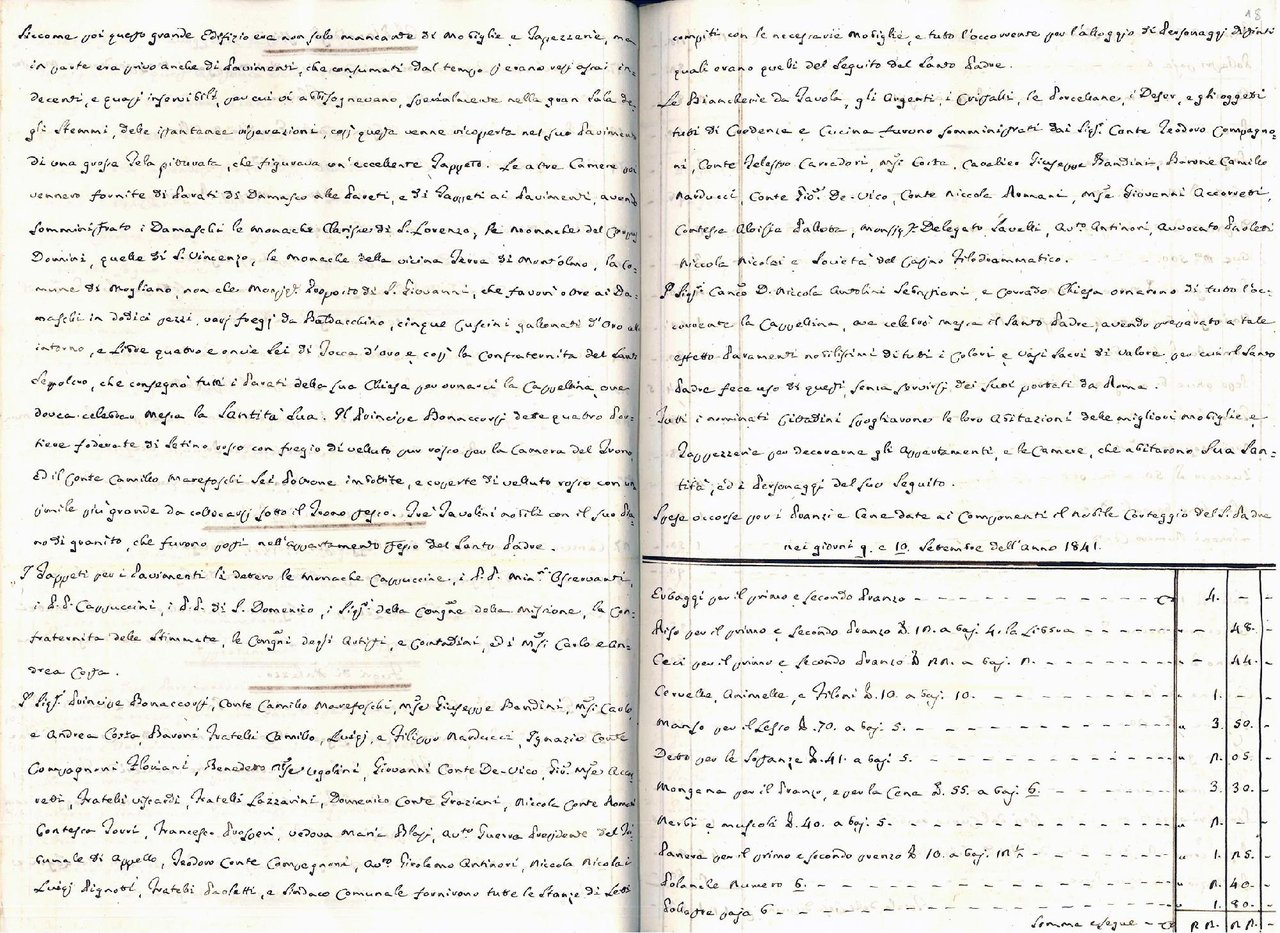 Siccome poi questo grande Edifizio era non solo mancante di Mobiglie e Tapezzerie, ma
in parte era privo anche di Pavimenti, che consumati dal tempo s'erano resi assai in=
decenti, e quasi inservibili, per cui vi abbisognavano, specialmente nella gran Sala de=
gli Stemmi, delle istantanee riparazioni, così questa venne ricoperta nel suo Pavimento
di una grossa Tela pitturata, che figurava un'eccellente Tappeto. Le altre Camere poi
vennero fornite di Parati di Damasco alle Pareti, e di Tappeti ai Pavimenti, avendo
somministrato i Damaschi le Monache Clarisse di S. Lorenzo, le Monache del Corpus
Domini, quelle di S. Vincenzo, le Monache della vicina Terra di Mont'olmo, la Co=
mune di Mogliano, non che Monsig.r Proposito di S. Giovanni, che favorì oltre ai Da=
maschi in dodici pezzi, varj fregj da Baldacchino, cinque Cuscini gallonati d'Oro all'
intorno, e Libre quattro e oncie sei di Tocca d'oro e così la Confraternita del Santo
Sepolcro, che consegnò tutti i Parati della sua Chiesa per ornarci la Cappellina, ove
dovea celebrar Messa la Santità Sua. Il Principe Bonaccorsj dette quattro Por=
tiere foderate di Setino rosso con fregio di velluto pur rosso per la Camera del Trono,
ed il Conte Camillo Marefoschi Sei Poltrone imbottite, e coperte di velluto rosso con un
simile più grande da collocarsj sotto il Trono stesso. Trè Tavolini nobili con il suo Pia=
no di granito, che furono postj nell'appartamento stesso del Santo Padre.
I Tappeti per i Pavimenti li dettero le Monache Cappuccine, i P.P. Min.ri Osservanti,
i P.P. Cappuccini, i P.P. di S. Domenico, i Sig.ri della Congñe della Missione, la Con=
fraternita delle Stimmate, le Congñi degli Artisti, e Contadini, ed i M.si Carlo e An=
drea Costa.
I Sig.ri Principe Bonaccorsj, Conte Camillo Marefoschi, M.se Giuseppe Bandini, M.si Carlo,
e Andrea Costa, Baroni Fratelli Camillo, Luigj, e Filippo Narducci, Ignazio Conte
Compagnoni Floriani, Benedetto M.se Ugolini, Giovanni Conte De-Vico, Gio. M.se Accor=
retti, Fratelli Viscardi, Fratelli Lazzarini, Domenico Conte Graziani, Niccola Conte Romani
Contessa Torri, Francesco Prosperi, vedova Maria Blasj, Av.to Guerra Presidente del Tri=
bunale di Appello, Teodoro Conte Compagnoni, Av.to Girolamo Antinori, Niccola Nicolai
Luigj Pignotti, Fratelli Paoletti, e Sindaco Comunale fornirono tutte le Stanze di Letti
18
compiti con le necessarie Mobiglie, e tutto l'occorrente per l'alloggio di Personaggj Distinti
quali erano quelli del Seguito del Santo Padre.
Le Biancherie da Tavola, gli Argenti, i Cristalli, le Porcellane, i Deser, e gli oggetti
tutti di Credenza e Cucina furono somministrati dai Sig.ri Conte Teodoro Compagno=
ni, Conte Telesforo Carradori, M.si Costa, Cavaliere Giuseppe Bandini, Barone Camillo
Narducci, Conte Gio. De-Vico, Conte Niccola Romani, M.se Giovanni Accorretti,
Contessa Aloisia Pallotta, Monsig.r Delegato Lavelli, Av.to Antinori, Avvocato Paoletti
Niccola Nicolai e Società del Casino Filodrammatico.
I Sig.ri Can.co D. Niccola Antolini Sebastiani, e Corrado Chiesa ornarono di tutto l'oc=
corrente la Cappellina, ove celebrò Messa il Santo Padre, avendo preparato a tale
effetto Paramenti nobilissimi di tutti i Colori e Vasi Sacri di valore per cui il Santo
Padre fece uso di questi, senza servirsi dei suoi portati da Roma.
Tutti i nominati Cittadini spogliavano le loro Abitazioni delle migliori Mobiglie e
Tappezzerie per decorarne gli Appartamenti, e le Camere, che abitarono Sua San=
tità, ed i Personaggj del suo Seguito.
Spese occorse per i Pranzi e Cene date ai Componenti il Nobile Corteggio del S. Padre
nei giorni 9. e 10. Settembre dell'anno 1841.
Erbaggi per il primo e secondo Pranzo - - - 4. - -
Riso per il primo e secondo Pranzo ℔. 12. a baj. 4. la Libbra - - - " - 48. -
Ceci per il primo e secondo Pranzo ℔ 22. a baj. 2. - - - " - 44. -
Cervella, Animelle, e Filoni ℔. 10. a baj. 10. - - - " 1. - -
Manzo per il Lesso ℔. 70. a baj. 5. - - - " 3. 50. -
Detto per le Sostanze ℔. 41. a baj. 5. - - - " 2. 05. -
Mongana per il Pranzo, e per la Cena ℔. 55. a baj. 6. - - - " 3. 30. -
Nerbi e muscoli ℔. 40. a baj. 5. - - - " 2. - -
Panera per il primo e secondo pranzo ℔ 10. a baj. 12½ - - - " 1. 25. -
Polanche Numero 6. - - - " 2. 40. -
Pollastre paja 6 - - - " 1. 80. -
Somma e segue - 22. 22. -